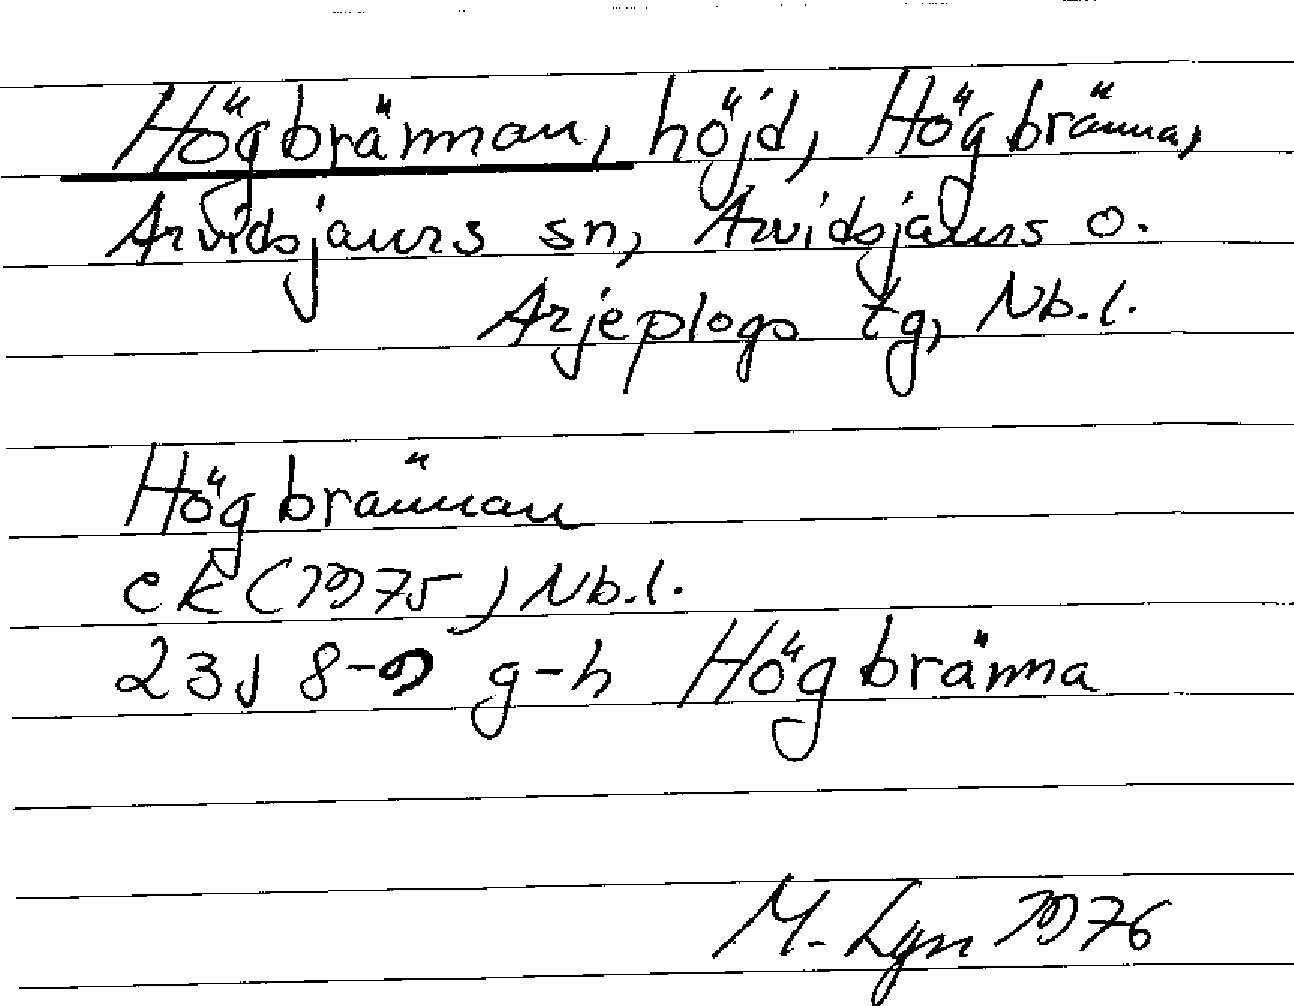 Högbrännan, höjd, Högbränna,
Arvidsjaurs sn, Arvidsjaurs o.
Arjeplogs tg, Nb.l.
Högbrännan
ek (1975) Nb.l.
23J 8-9 g-h Högbränna
M. Lgn 1976